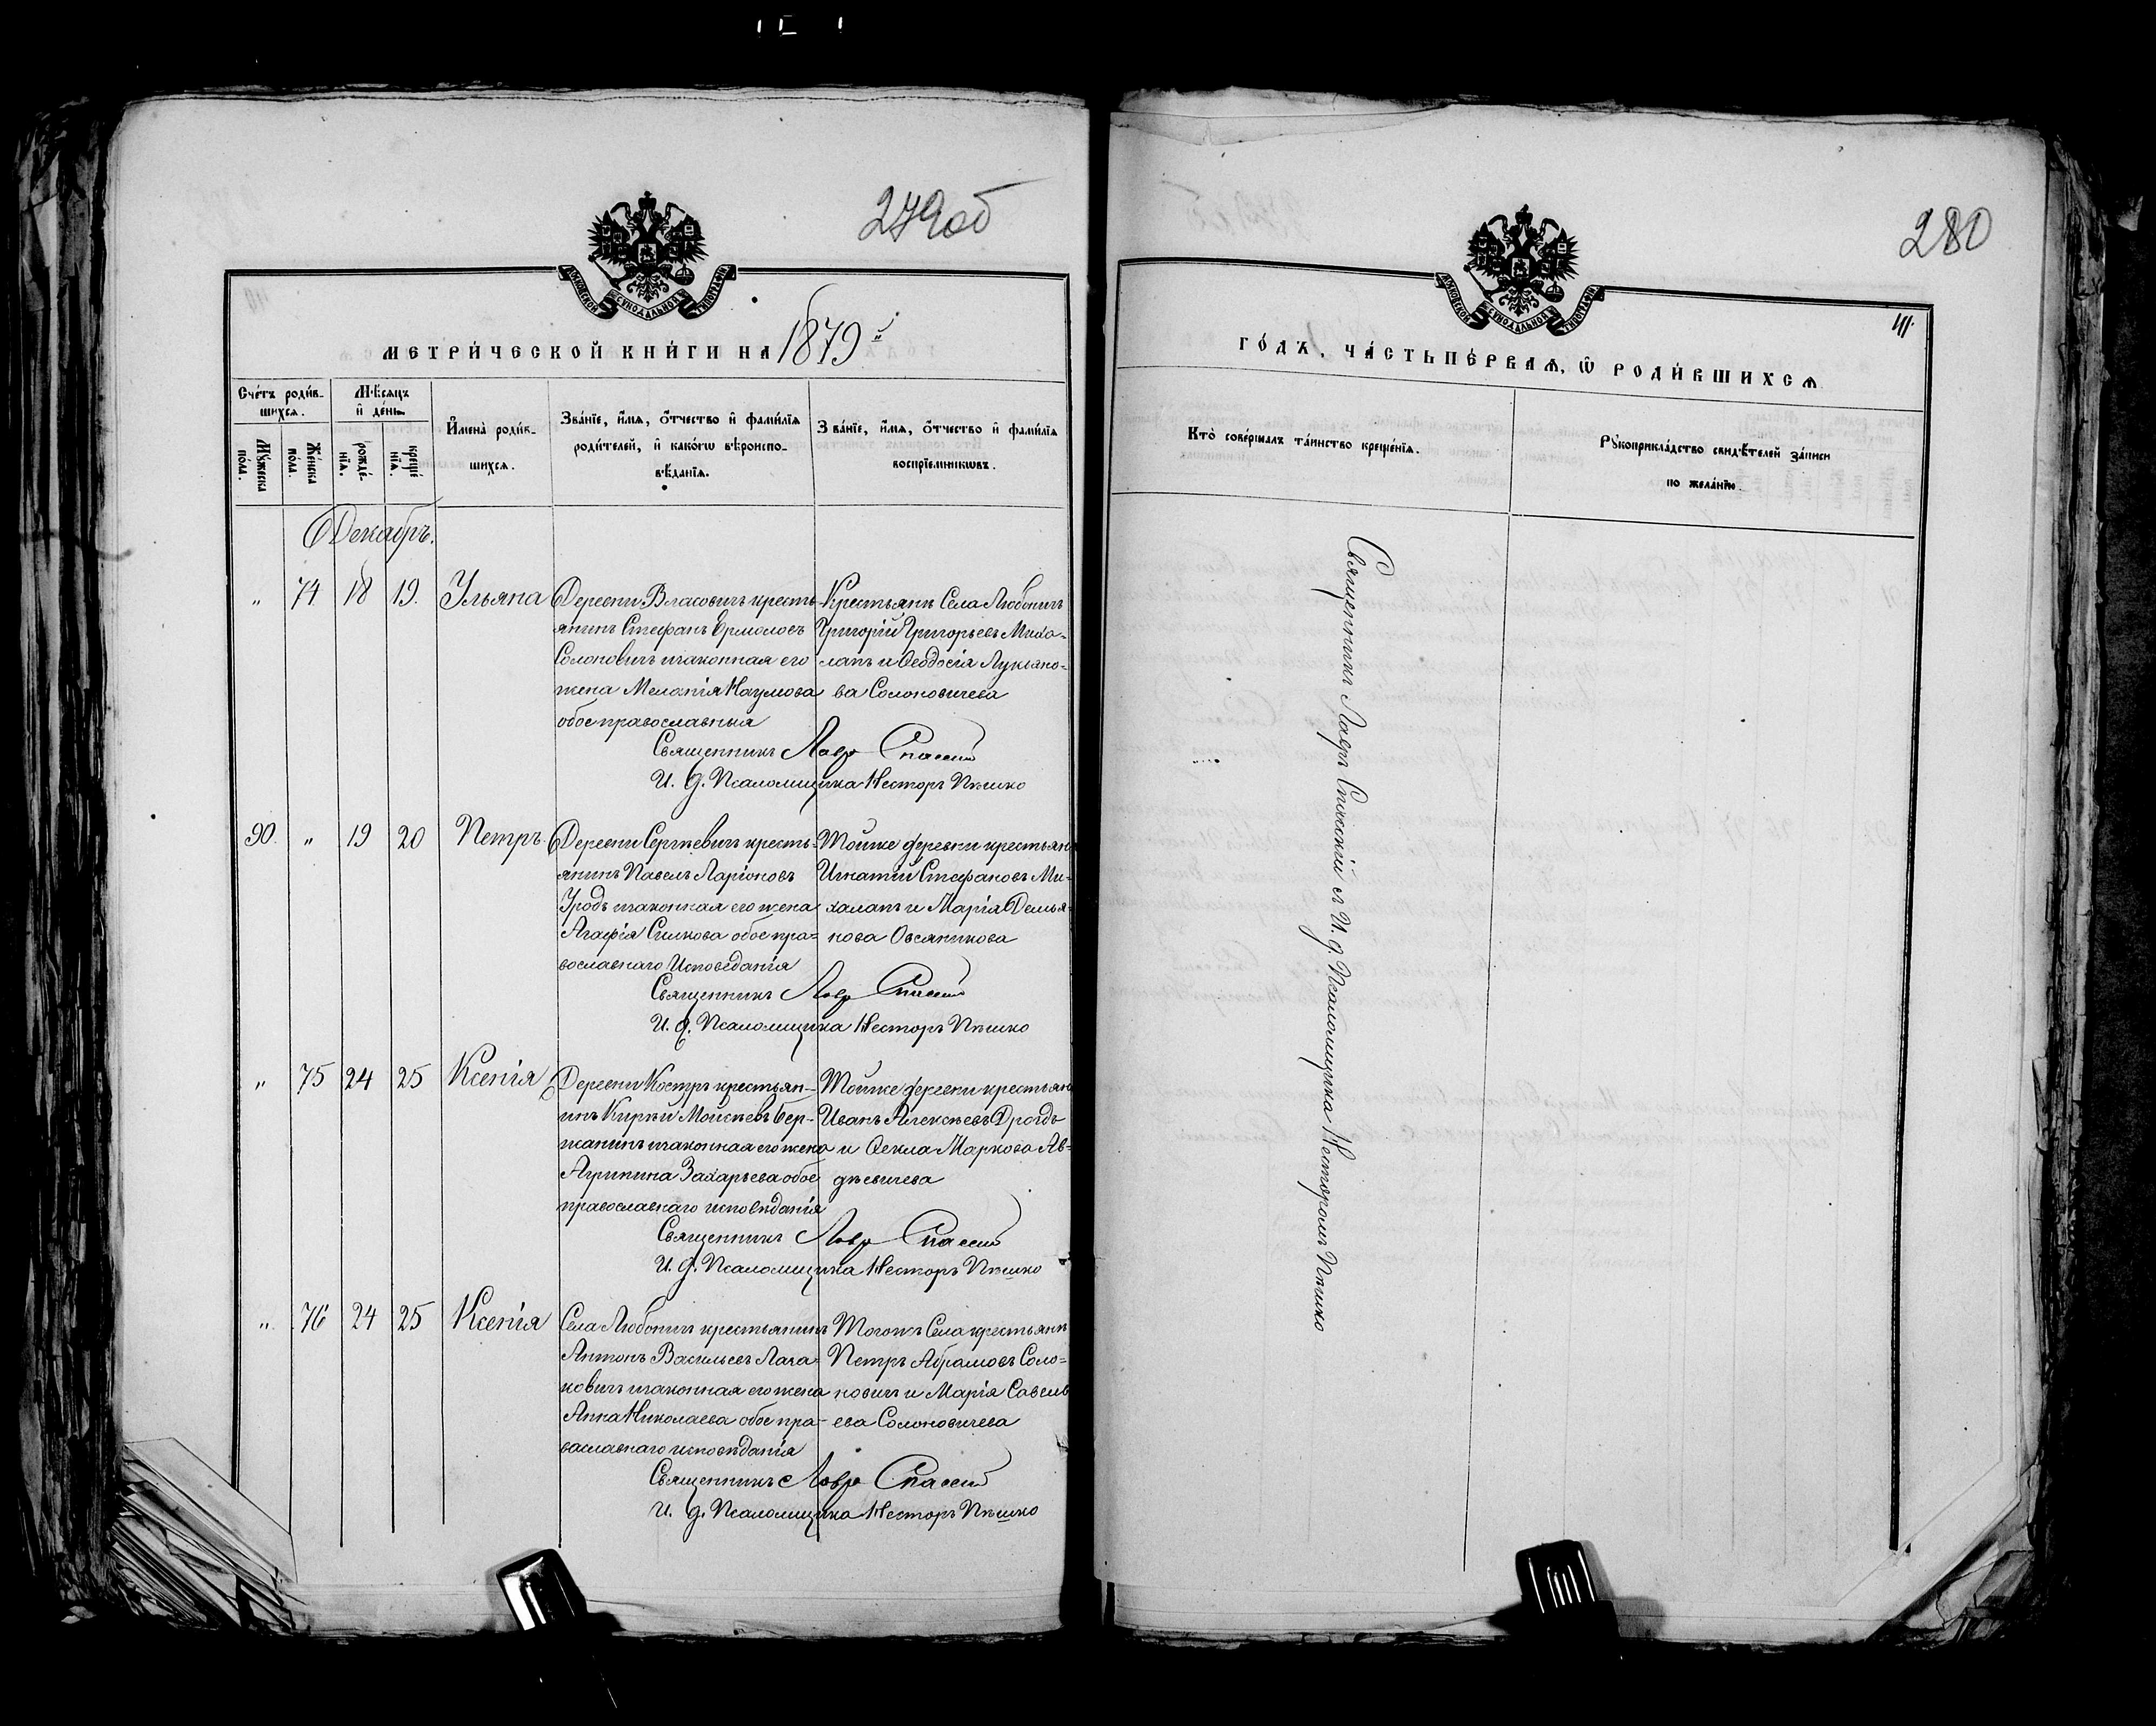 279об
МОСКОВСКОЙ СѴНОДАЛЬНОЙ ТИПОГРАФІИ
МЕТРИ́ЧЕСКОЙ КНИ́ГИ НА 1879й
Сче́тъ роди́в-
шихся.
Мѣ́сяцъ
и҆ де́нь.
И҆мена̀ роди́в-
шихся.
Зва́нїе, и҆́мя, ѻ҆́тчество и҆ фами́лїя
роди́телей, и҆ како́гѡ вѣроиспо-
вѣ́данїя.
Зва́нїе, и҆́мя, ѻ҆́тчество и҆ фами́лїя
воспрїе́мникѡвъ.
Мꙋ́жеска
по́ла.
Же́нска
по́ла.
рожде́-
нїя.
креще́
нїя.
Декабрь.
" 74 18 19. Ульяна
Деревни Власовичъ кресть-
янинъ Стефанъ Ермолаевъ
Солоновичъ изаконная его
жена Меланія Наумова
обое православныя
Крестьяне Села Любоничъ
Григорій Григорьевъ Миха-
лапъ и Ѳеодосія Лукьяно-
ва Солоновичева
Священникъ Лавръ Спасскій
И. д. Псаломщика Несторъ Пѣшко
90. " 19 20 Петръ.
Деревни Сергѣевичъ кресть-
янинъ Павелъ Ларіоновъ
Уродъ изаконная его жена
Агафія Силкова обое пра-
вославнаго Исповеданія
Тойже деревни крестьяне
Игнатій Стефановъ Ми-
халапъ и Марія Демья-
нова Овсяникова
Священникъ Лавръ Спасскій
И. д. Псаломщика Несторъ Пѣшко
" 75 24 25 Ксенія
Деревни Костръ крестьян-
инъ Кирѣй Мойсѣевъ Бер-
жанинъ изаконная его жена
Агрипина Захарьева обое
православнаго исповѣданія
Тойже деревни крестьяне
Иванъ Алексѣевъ Дроздъ
и Ѳекла Маркова Ав-
дѣевичева
Священникъ Лавръ Спасскій
И. д. Псаломщика Несторъ Пѣшко
" 76 24 25 Ксенія
Села Любоничъ крестьянинъ
Антонъ Васильевъ Лага-
новичъ изаконная его жена
Анна Николаева обое пра-
вославнаго исповѣданія
Тогожъ Села крестьяне
Петръ Абрамовъ Соло-
новичъ и Марія Савель
ева Солоновичева
Священникъ Лавръ Спасскій
И. д. Псаломщика Несторъ Пѣшко
280
МОСКОВСКОЙ СѴНОДАЛЬНОЙ ТИПОГРАФІИ
ГО́ДЪ, ЧА́СТЬ ПЕ́РВАЯ, Ѡ҆ РОДИ́ВШИХСЯ
Кто̀ соверша́лъ та́инство креще́нїя.
Рꙋкоприкла́дство свидѣ́телей за́писи
по жела́нїю.
Священникъ Лавръ Спасскій съ И. д. Псаломщика Несторомъ Пѣшко